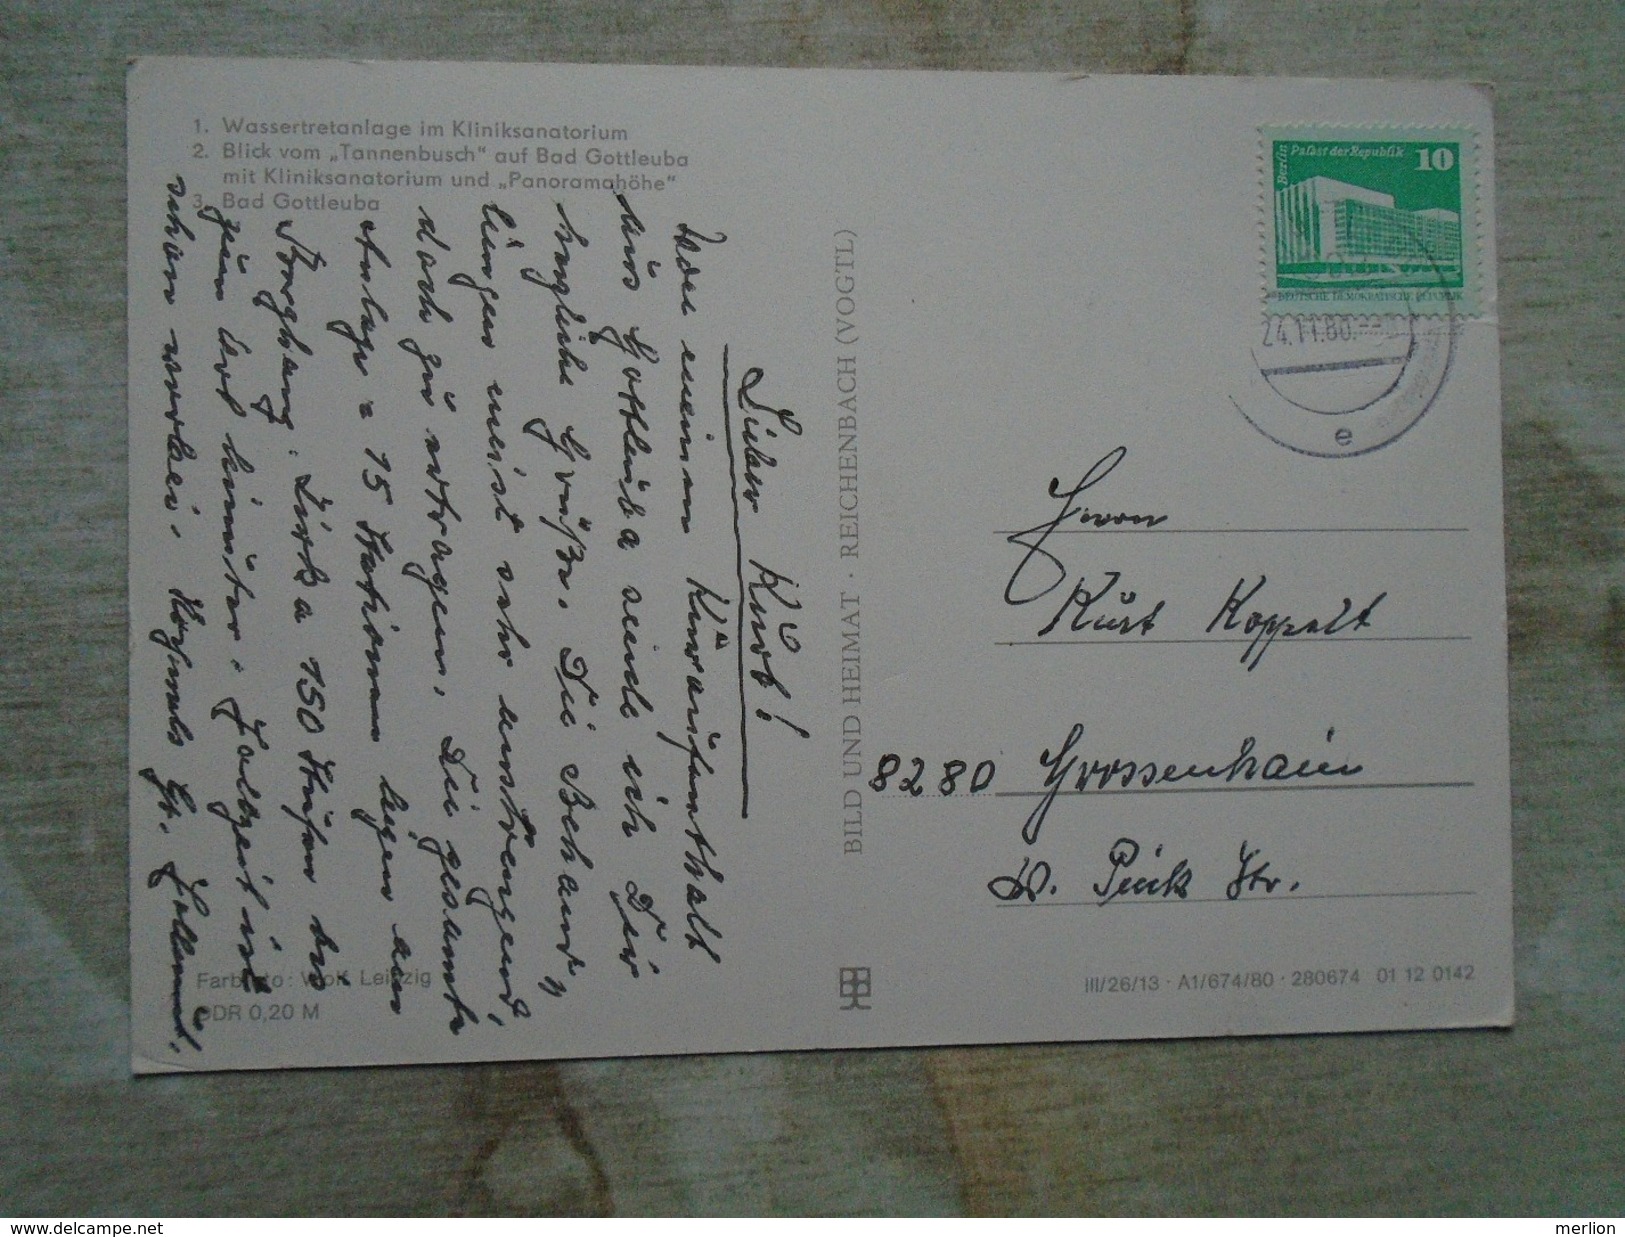 1. Wassertretanlage im Kliniksanatorium
2. Blick vom „Tannenbusch" auf Bad Gottleuba
mit Kliniksanatorium und „Panoramahöhe"
3. Bad Gottleuba
Lieber Kurt!
Von meinem Kuraufenthalt
aus Gottleuba sende ich Dir
herzliche Grüße. Die Behand-
lungen meist sehr anstrengend,
doch zu ertragen. Die gesamte
Anlage = 15 Stationen liegen am
Berghang. Zirka 150 Stufen bis
zum Arzt hinunter. Halbzeit ist
schon vorbei. Nochmals Gr.
Farbfoto: Wolf, Leipzig
DDR 0,20 M
BILD UND HEIMAT · REICHENBACH (VOGTL)
Berlin
Palast der Republik 10
DEUTSCHE DEMOKRATISCHE REPUBLIK
24.11.80.--
e
Herrn
Kurt Koppelt
8280 Grossenhain
W. Pieck Str.
III/26/13 · A1/674/80 · 280674 01 12 0142
www.delcampe.net
merlion